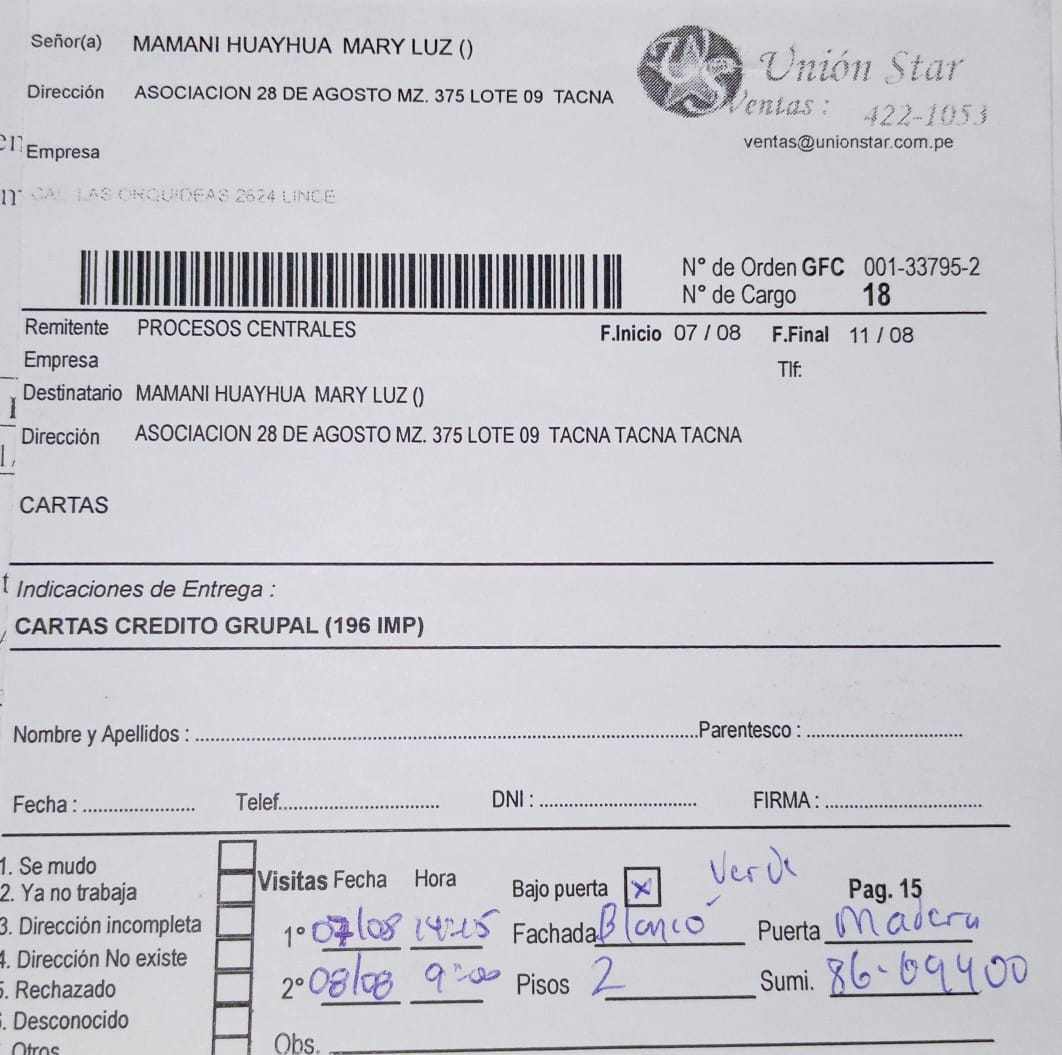 Señor(a) MAMANI HUAYHUA MARY LUZ ()
Unión Star
Dirección ASOCIACION 28 DE AGOSTO MZ. 375 LOTE 09 TACNA
Ventas : 422-1053
ventas@unionstar.com.pe
Empresa
CAL. LAS ORQUIDEAS 2624 LINCE
N° de Orden GFC 001-33795-2
N° de Cargo 18
Remitente PROCESOS CENTRALES F.Inicio 07 / 08 F.Final 11 / 08
Empresa Tlf:
Destinatario MAMANI HUAYHUA MARY LUZ ()
Dirección ASOCIACION 28 DE AGOSTO MZ. 375 LOTE 09 TACNA TACNA TACNA
CARTAS
Indicaciones de Entrega :
CARTAS CREDITO GRUPAL (196 IMP)
Nombre y Apellidos : Parentesco :
Fecha : Telef. DNI : FIRMA :
1. Se mudo
2. Ya no trabaja
3. Dirección incompleta
4. Dirección No existe
5. Rechazado
. Desconocido
Otros
Visitas Fecha Hora Bajo puerta X Verde Pag. 15
1° 07/08 14:15 Fachada Blanco Puerta Madera
2° 08/08 9:00 Pisos 2 Sumi. 86-09400
Obs.